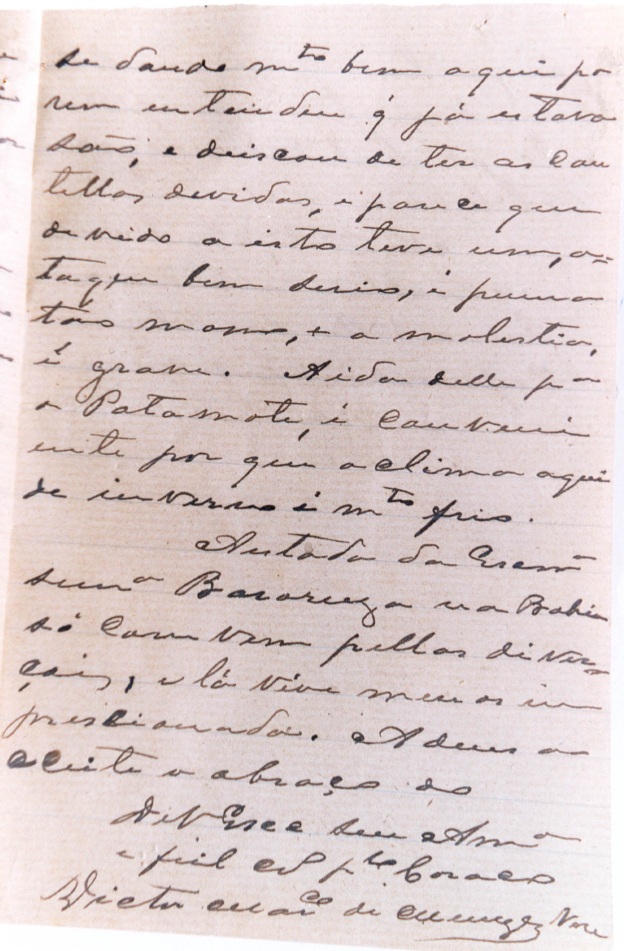 se dando mto bem aqui po
rem entendeu q̃ já estava
são, e deixou de ter as cau
tellas devidas, e parece que
devido a isto teve um, a=
taque bem serio, e
a molestia,
é grave. A ida delle pa
o Patamoté, é conveni
ente por que o clima aqui
de inverno é mto frio.
A estada da Exma
Senra Baroneza na Bahia
só convem pellas diver
ções, e lá vive menos im
presionada. Adeus
aceite o abraço do
De V Exce seu Amo
e fiel
de Menezes